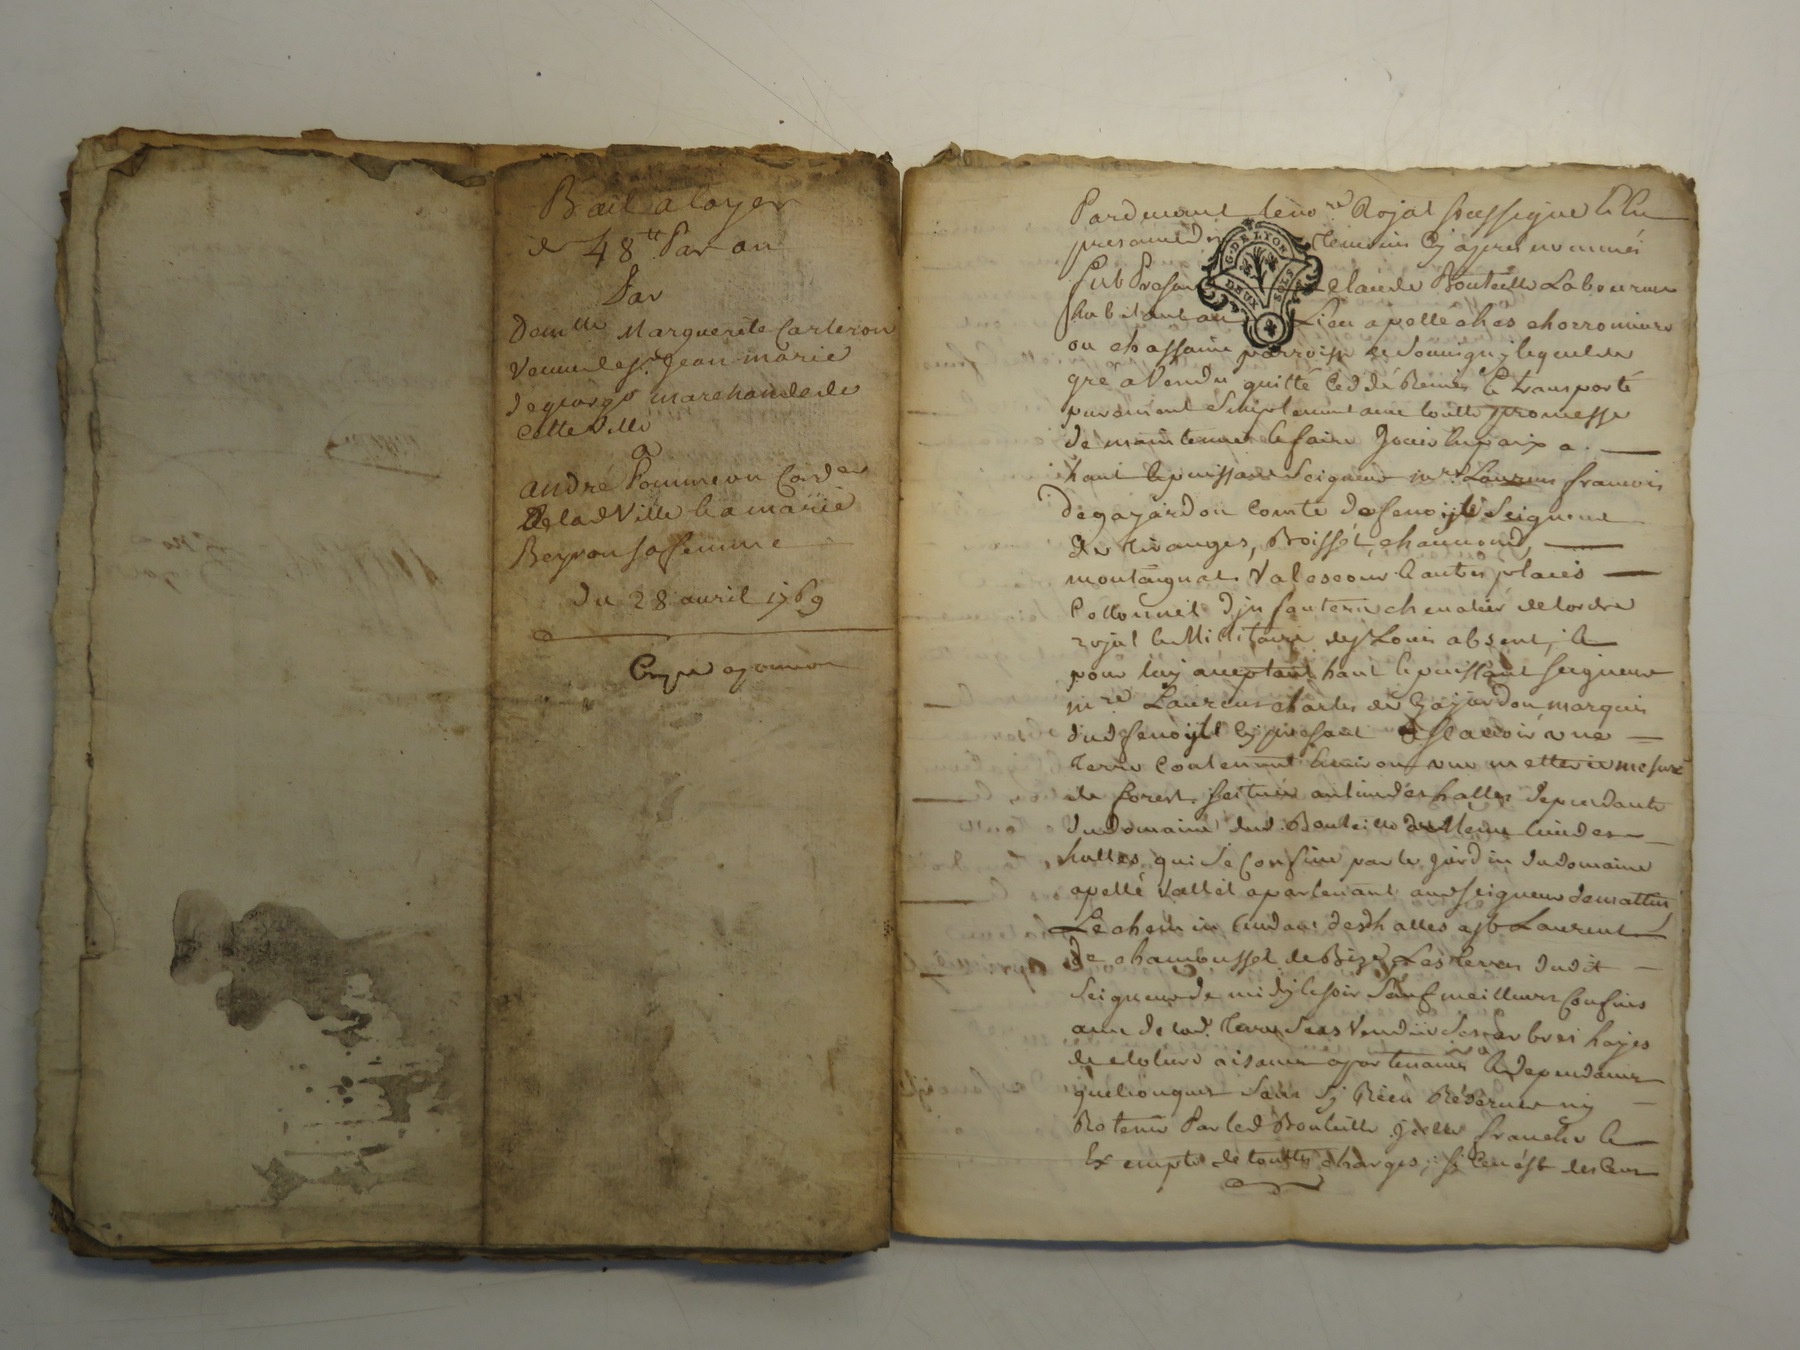 Bail a loyer
de 48 tt Par an
Par
Dem.lle Marguerite Carteron
Veuve de sr. Jean marie
degeorge marchande de
cette ville
a
andré Pommeon Cord.er
de lad Ville & a marie
Beyron sa femme
du 28 avril 1769
Pardevant le no.re Royal soussigné & en
presance des temoins cy apres nommés
fut Presant Claude Bouteille Laboureur
habitant au Lieu apellé chés chorromiere
ou chassaine parroisse de Souvigny lequel de
gré a vendu quitté cedé Remis & transporté
purement & simplement avec toutte promesse
de maintenir & faire Jouir en paix a
haut & puissant Seigneur m.re Laurens francois
degayardon Comte de fenoyl Seigneur
de tiranges, Boisset, chaumond,
montaignat Valescour & autres places
Collonnel d'infanterie chevalier de lordre
royal & Militaire de st Louis absent, &
pour luy acceptant haut & puissant seigneur
m.re Laurens charles de Gayardon marquis
dud fenoyl cy presant scavoir une
terre Contenant environ une metterée mesure
de forest scituée au lieu des halles dependante
du Domaine dud. Bouteille dud lieu des
halles, qui se Confine par le jardin du Domaine
apellé Vallet apartenant aud seigneur de matin
Le chemin tendant des halles a st Laurent
de chamousset de Bize, Les terres dudit
Seigneur de midy & soir sauf meilleurs Confins
avec de lad. terre Ses arbres hayes
de cloture aisances apartenances & dependances
quelconques sans y Rien Réserver ny
Retenir Par led Bouteille Icelle franche &
Exempte de touttes charges, si ce n'est des cens
G. DE LYON
DEUX SOLS